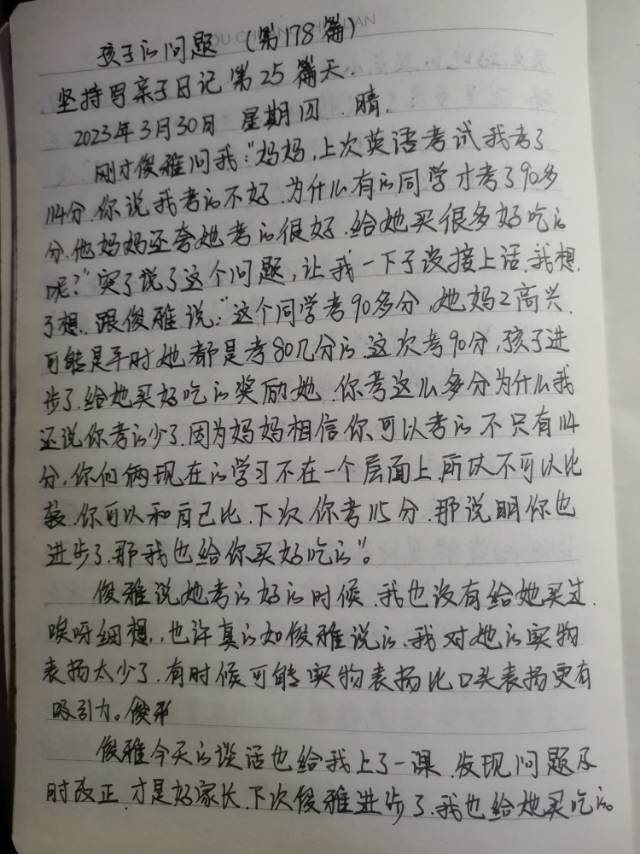 孩子的问题 (第178篇)
坚持写亲子日记第25篇天.
2023年3月30日 星期四. 晴.
刚才俊雅问我:"妈妈,上次英语考试我考了
114分.你说我考的不好.为什么有的同学才考了90多
分.他妈妈还夸她考的很好.给她买很多好吃的
呢?"突然说了这个问题,让我一下子没接上话.我想
了想.跟俊雅说:"这个同学考90多分,她妈妈高兴.
可能是平时她都是考80几分的.这次考90分,孩子进
步了.给她买好吃的奖励她.你考这么多分为什么我
还说你考的少了.因为妈妈相信你可以考的不只有114
分,你们俩现在的学习不在一个层面上.所以不可以比
较.你可以和自己比.下次你考115分.那说明你也
进步了.那我也给你买好吃的"。
俊雅说她考的好的时候.我也没有给她买过.
唉呀细想,也许真的如俊雅说的.我对她的实物
表扬太少了.有时候可能实物表扬比口头表扬更有
吸引力。俊
俊雅今天的谈话也给我上了一课.发现问题及
时改正.才是好家长.下次俊雅进步了.我也给她买吃的。